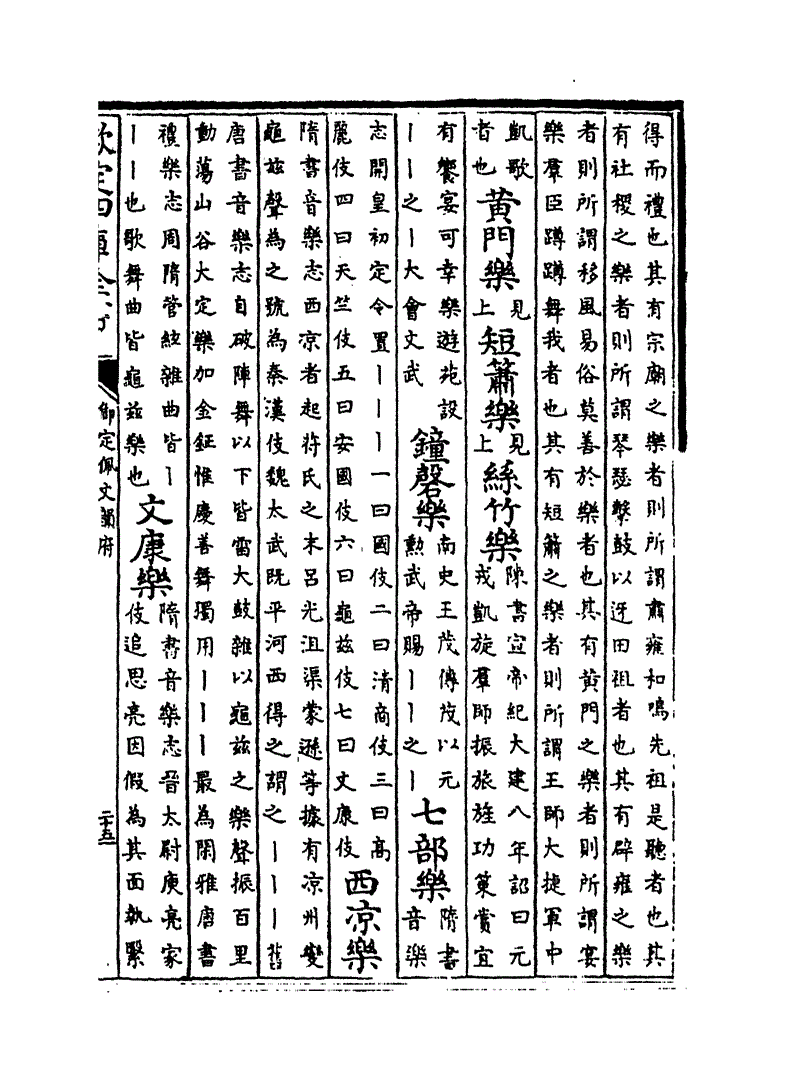 得而禮也其有宗廟之樂者則所謂肅雍和鳴先祖是聽者也其
有社稷之樂者則所謂琴瑟擊鼓以迓田祖者也其有辟雍之樂
者則所謂移風易俗莫善於樂者也其有黄門之樂者則所謂宴
樂羣臣蹲蹲舞我者也其有短簫之樂者則所謂王師大捷軍中
凱歌
者也
黄門樂
見
上
短簫樂
見
上
絲竹樂
陳書宣帝紀大建八年詔曰元
戎凱旋羣師振旅旌功策賞宜
有饗宴可幸樂遊苑設
丨丨之丨大會文武
鐘磬樂
南史王茂傳茂以元
勲武帝賜丨丨之丨
七部樂
隋書
音樂
志開皇初定令置丨丨丨一曰國伎二曰清商伎三曰髙
麗伎四曰天竺伎五曰安國伎六曰龜兹伎七曰文康伎
西凉樂
隋書音樂志西凉者起苻氏之末吕光沮渠蒙遜等據有凉州變
龜兹聲為之號為秦漢伎魏太武既平河西得之謂之丨丨丨舊
唐書音樂志自破陣舞以下皆雷大鼓雜以龜兹之樂聲振百里
動蕩山谷大定樂加金鉦惟慶善舞獨用丨丨丨最為閑雅唐書
禮樂志周隋管絃雜曲皆丨
丨丨也歌舞曲皆龜兹樂也
文康樂
隋書音樂志晉太尉庾亮家
伎追思亮因假為其面執翳
欽定四庫全書
御定佩文韻府
二十五